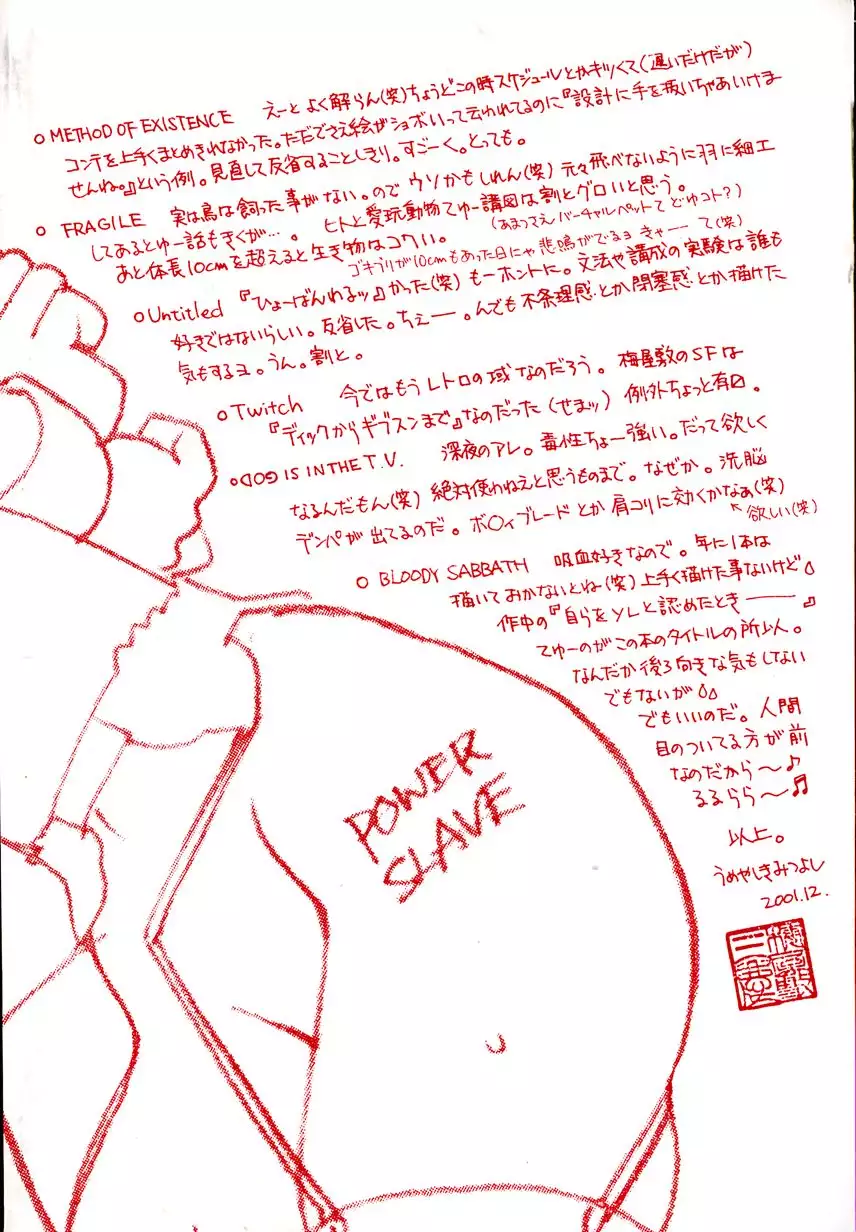 ○ METHOD OF EXISTENCE えーと よく解らん(笑)ちょうどこの時スケジュールとかキツくて(遅いだけだが)
コンテを上手くまとめきれなかった。ただでさえ絵がショボいって云われてるのに『設計に手を抜いちゃあいけま
せんね。』という例。見直して反省することしきり。すごーく。とっても。
○ FRAGILE 実は鳥は飼った事がない。ので ウソかもしれん(笑) 元々飛べないように羽に細工
してあるとゆー話もきくが…。 ヒトと愛玩動物てゆー講図は割とグロいと思う。
(あまつさえバーチャルペットて どゆコト?)
あと体長10cmを超えると生き物はコワい。
ゴキブリが10cmもあった日にゃ 悲鳴がでるョ きゃー て(笑)
○Untitled 『ひょーばんわるッ』かった(笑) もーホントに。文法や講成の実験は誰も
好きではないらしい。反省した。ちぇー。んでも不条理感とか閉塞感とか描けた
気もするョ。うん。割と。
○Twitch 今ではもうレトロの域なのだろう。梅屋敷のSFは
『ディックからギブスンまで』なのだった(せまッ) 例外ちょっと有り。
○DOG IS IN THE T.V. 深夜のアレ。毒性ちょー強い。だって欲しく
なるんだもん(笑) 絶対使わねえと思うものまで。なぜか。洗脳
デンパが出てるのだ。ボ○ィブレードとか肩コリに効くかなぁ(笑)
↖欲しい(笑)
○ BLOODY SABBATH 吸血好きなので。年に1本は
描いておかないとね(笑)上手く描けた事ないけど
作中の『自らをソレと認めたとき――』
てゅーのがこの本のタイトルの所以。
なんだか後ろ向きな気もしない
でもないが
でもいいのだ。人間
目のついてる方が前
なのだから〜♪
るるらら〜♬
以上。
うめやしきみつよし
2001.12.
POWER
SLAVE